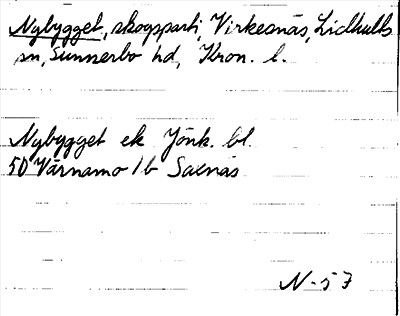 Nybygget, skogsparti, Virkesnäs, Lidhults
sn, Sunnerbo hd, Kron. l.
Nybygget ek Jönk. bl.
50 Värnamo 1b Saxnäs
N-57